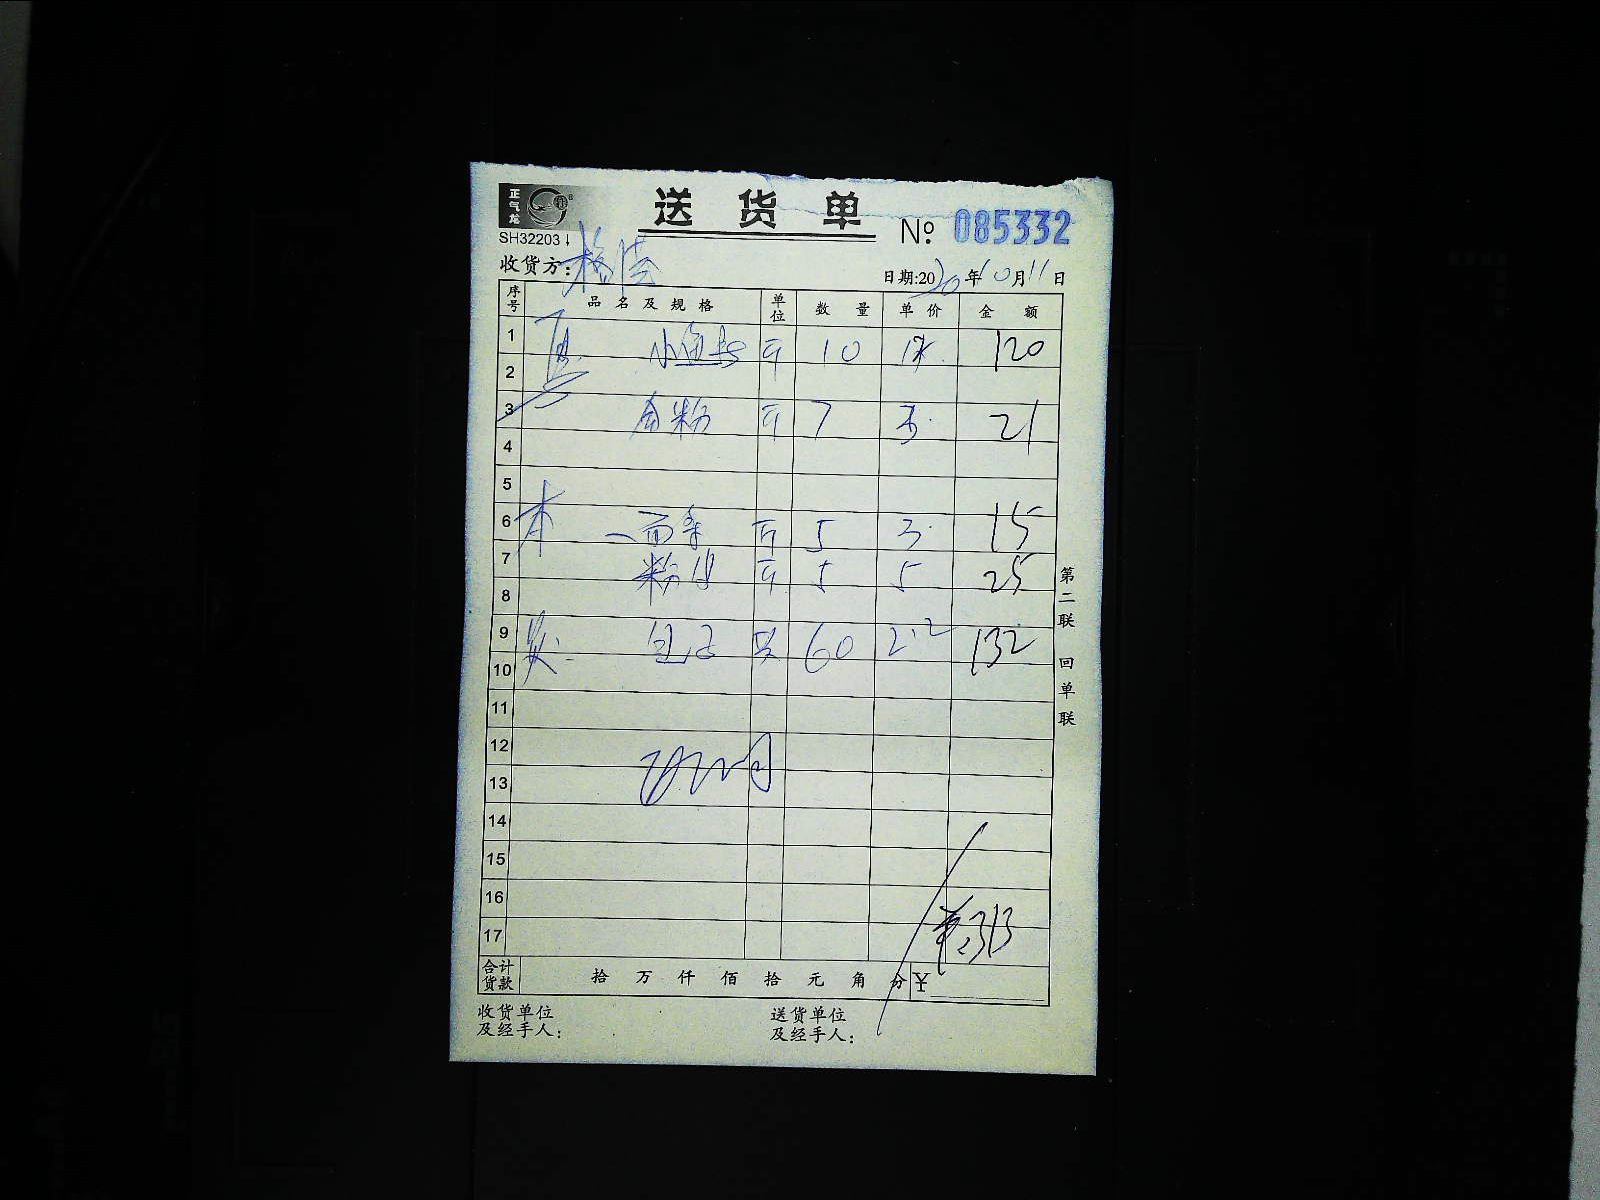 正气龙
送货单
№ 085332
SH32203
收货方:
日期:2020年10月11日
序号 品名及规格 单位 数量 单价 金额
1 斤 10 12. 120
2
3 粉 斤 7 3. 21
4
5
6 本 斤 5 3. 15
7 粉 斤 5 5 25
8
9 包子 只 60 2.2 132
10
11
12
13
14
15
16
17 313
合计货款 拾 万 仟 佰 拾 元 角 分 ¥
收货单位及经手人:
送货单位及经手人:
第二联 回单联